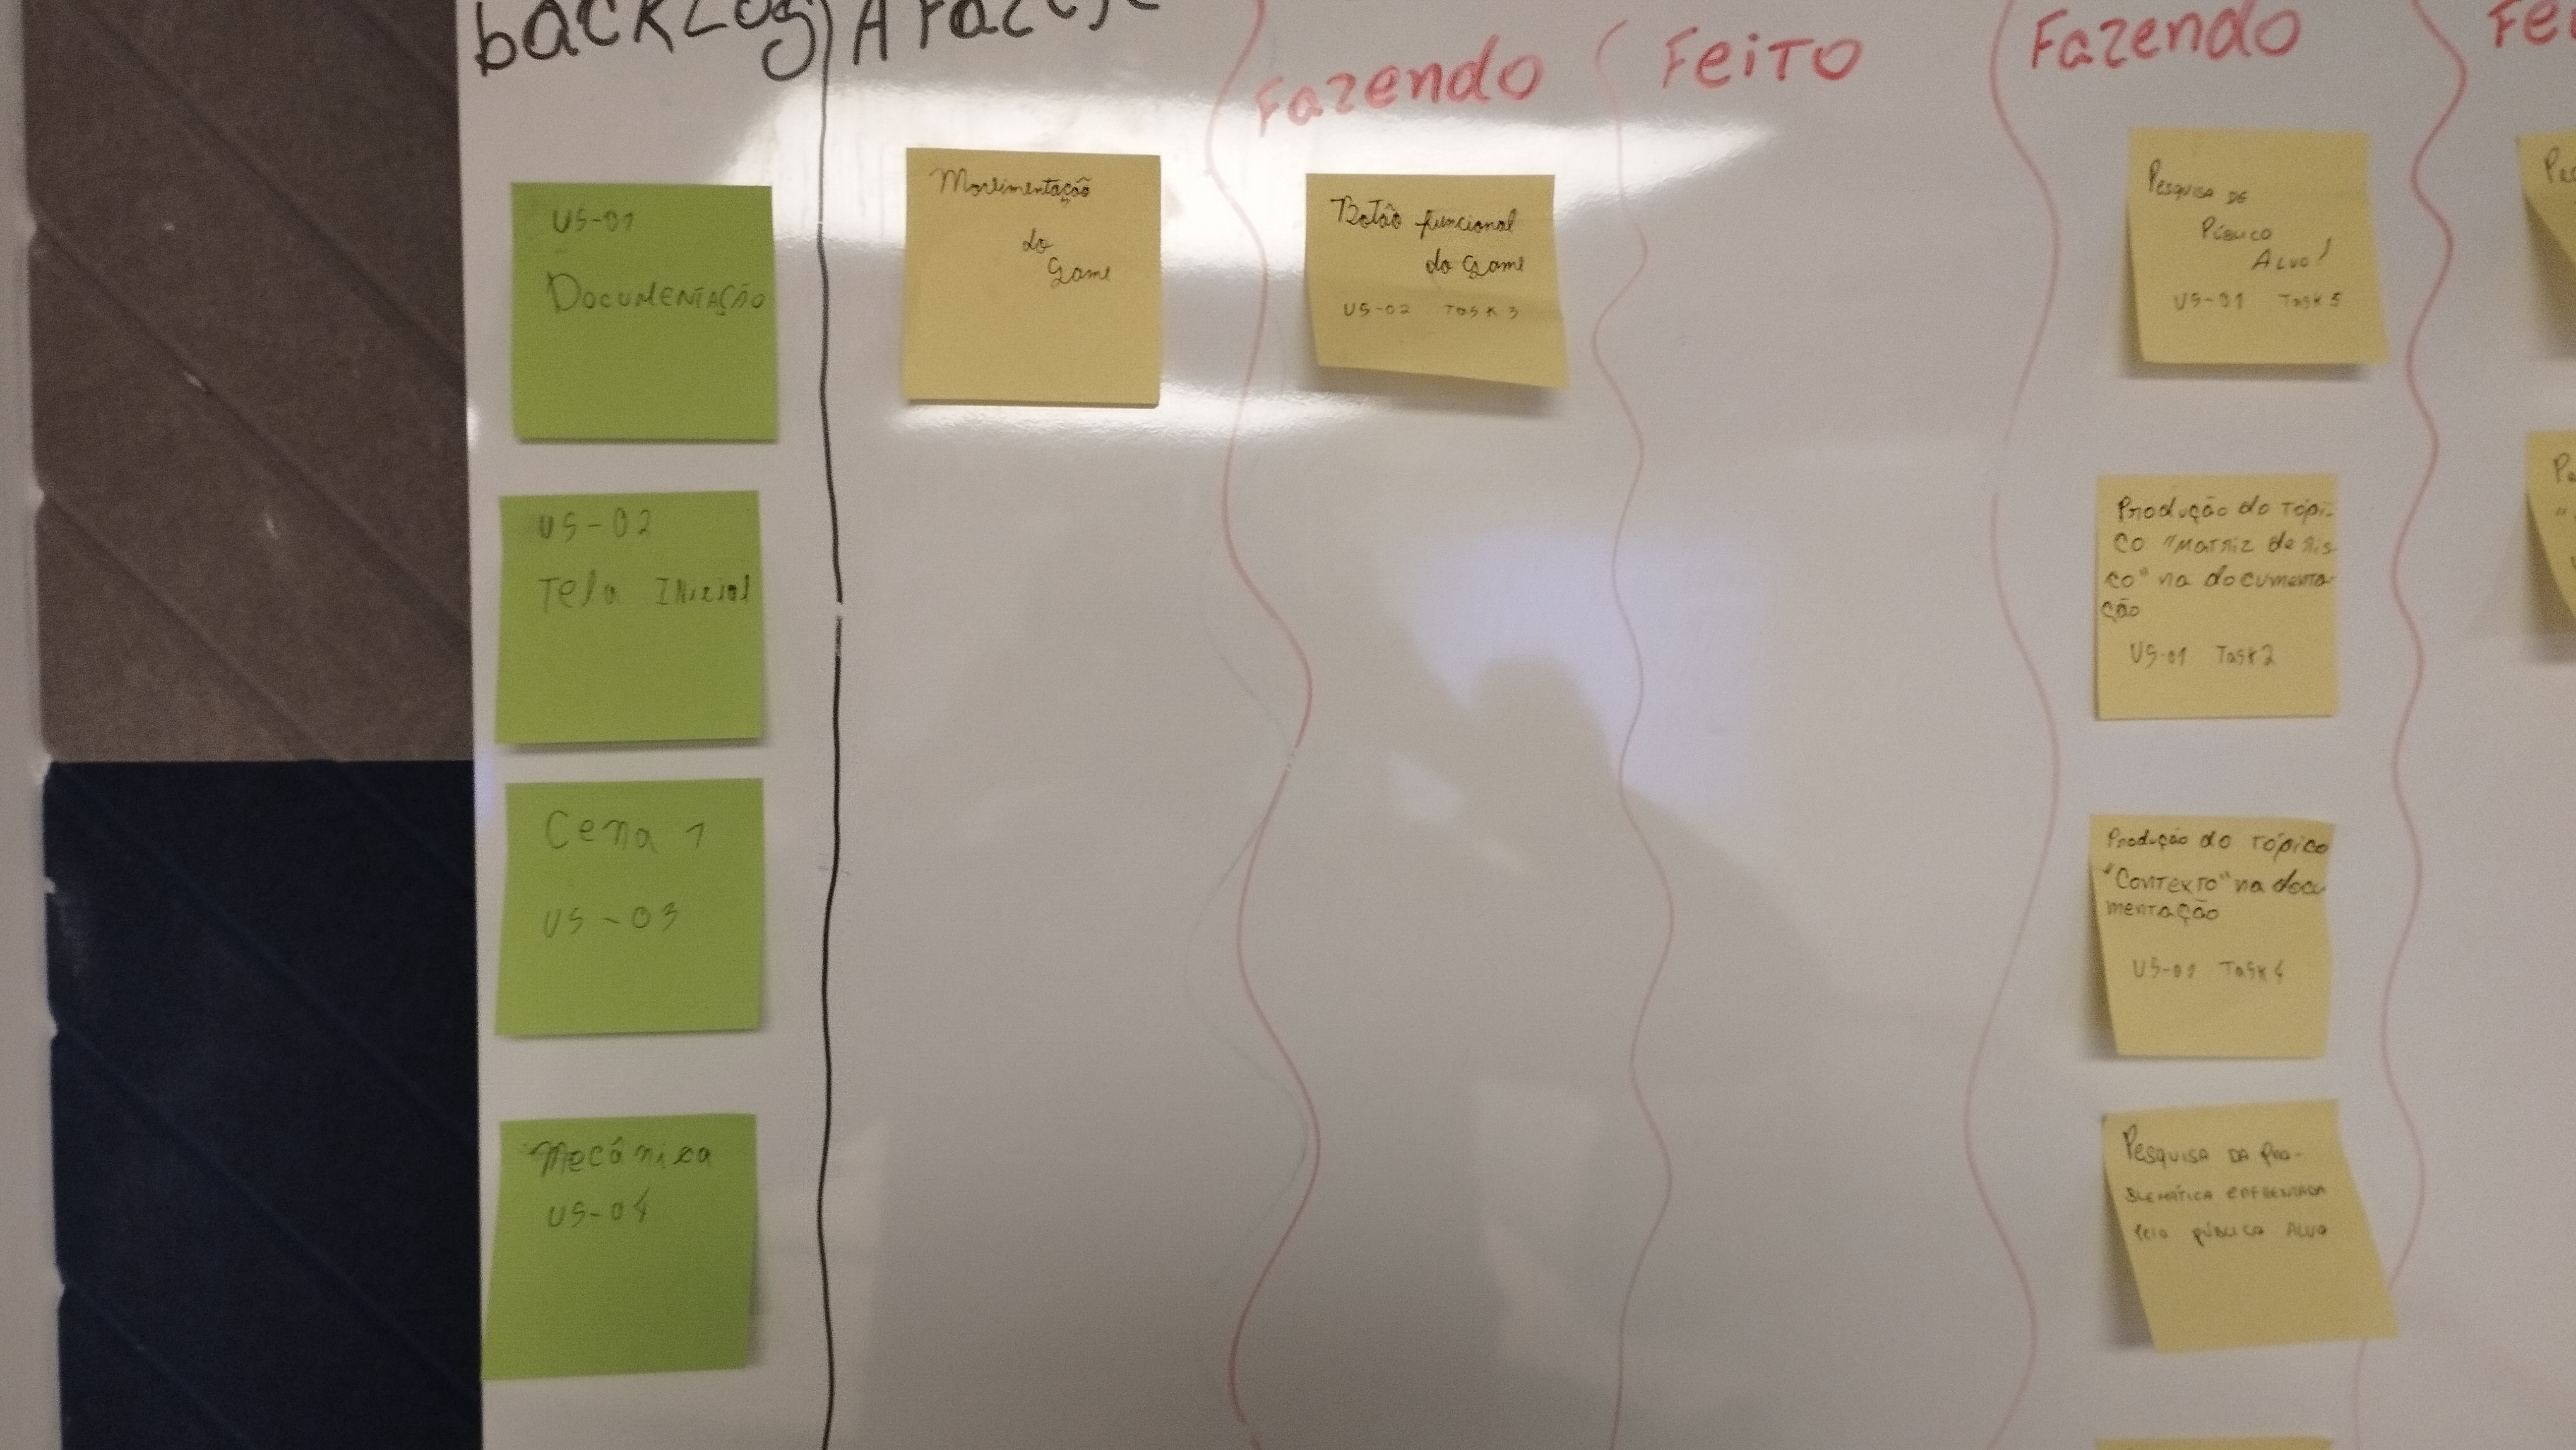 backlog
A Fazer
Fazendo
Feito
Fazendo
Fe
US-01
Documentação
US-02
Tela Inicial
Cena 1
US-03
Mecânica
US-04
Movimentação
do
Game
Botão funcional
do Game
US-02 Task 3
Pesquisa de
Público
Alvo!
US-01 Task 5
Produção do tópi-
co "Matriz de ris
co" na documenta-
ção
US-01 Task 2
Produção do tópico
"Contexto" na docu
mentação
US-01 Task 4
Pesquisa da pro-
blemática enfrentada
pelo público alvo